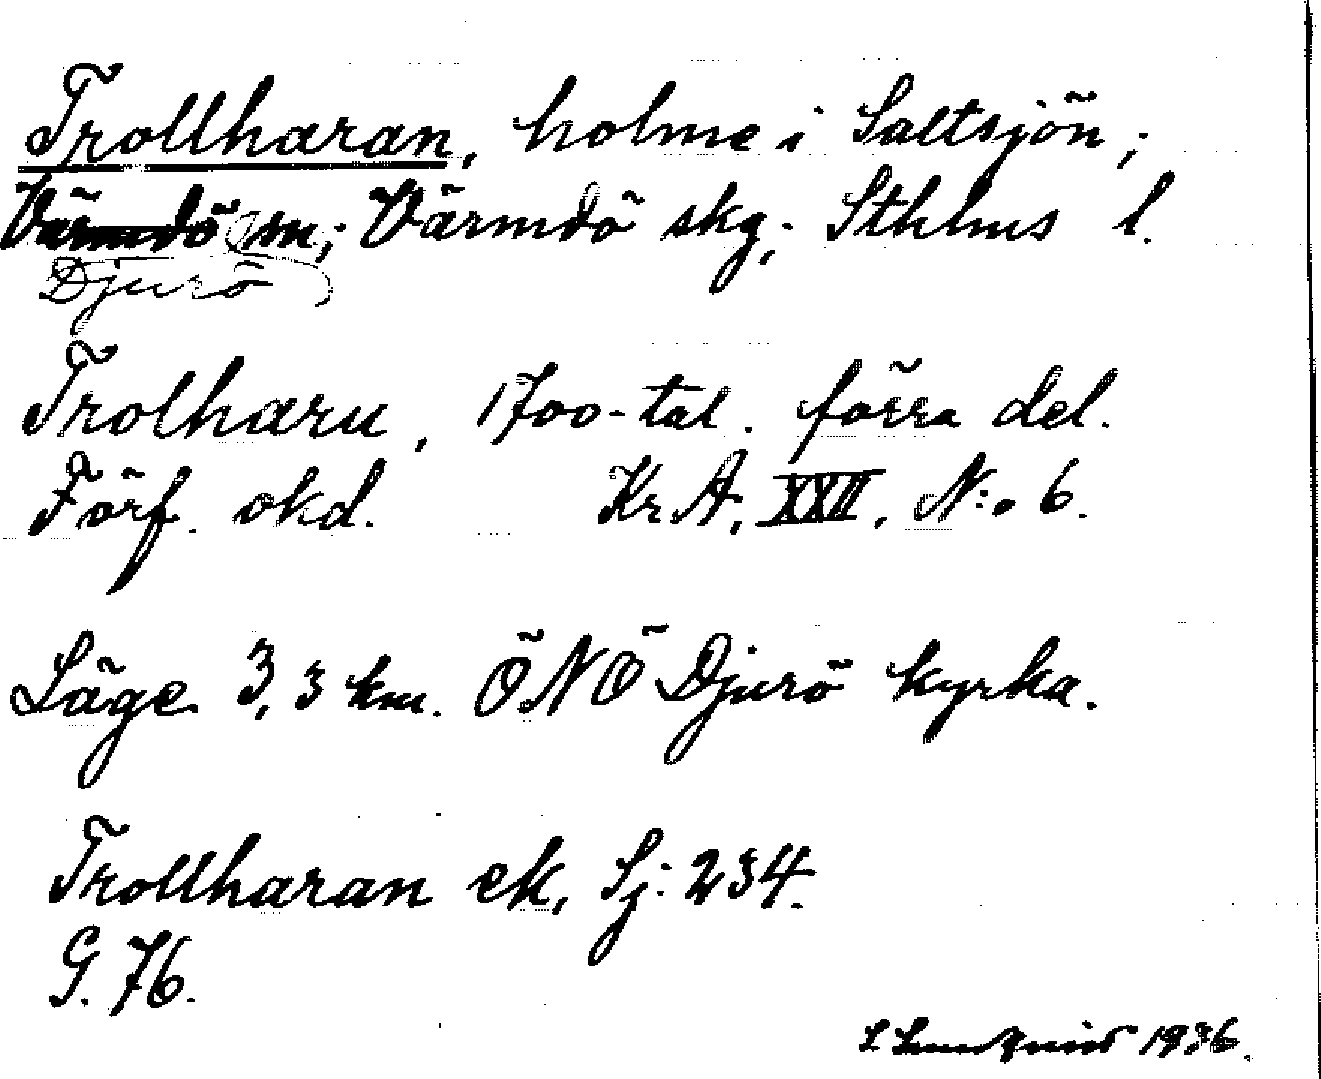 Trollharan, holme i Saltsjön;
Värmdö sn; Värmdö skg; Sthlms l.
Djurö
Trolharu, 1700-tal. förra del.
Förf. okd. Kr A, XXII, N:o 6.
Läge 3,3 km. ÖNÖ Djurö kyrka.
Trollharan ek, Sj: 234.
G. 76.
1936.